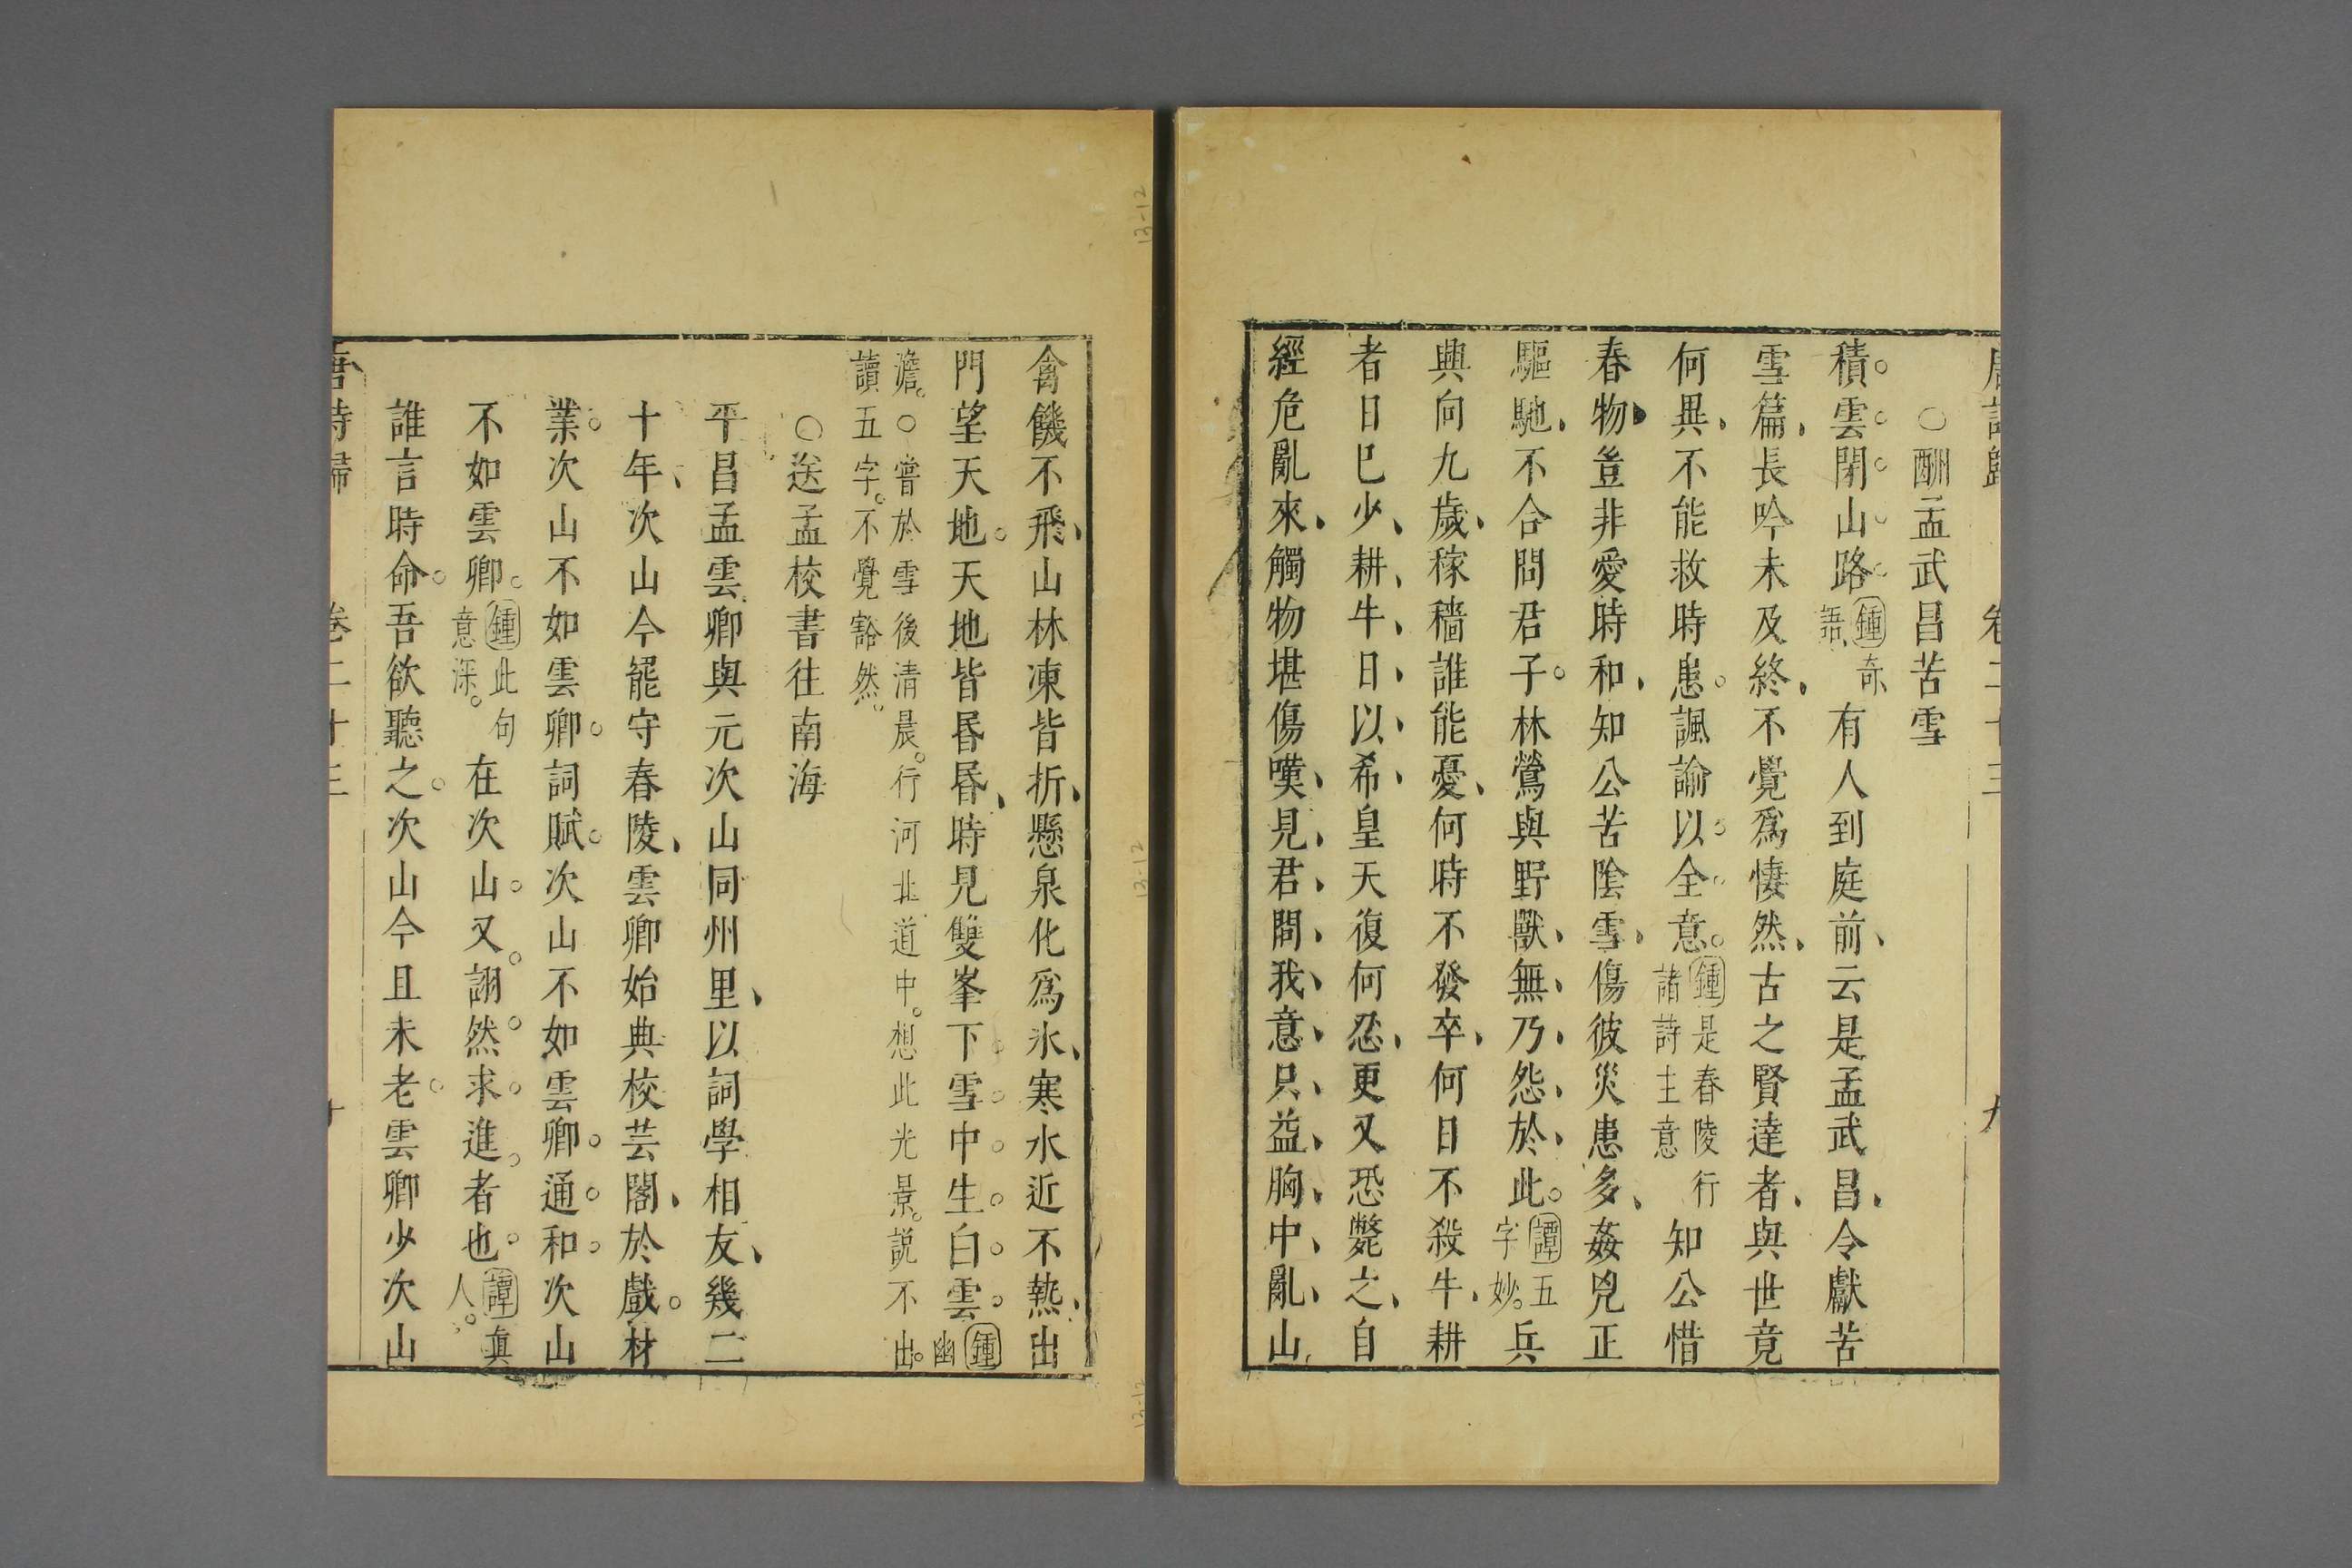 唐詩歸 卷二十三 九
○酬孟武昌苦雪
積雪閉山路鍾奇語有人到庭前云是孟武昌令獻苦
雪篇長吟未及終不覺爲悽然古之賢達者與世竟
何異不能救時患諷諭以全意鍾是春陵行諸詩主意知公惜
春物豈非愛時和知公苦陰雪傷彼災患多姦兇正
驅馳不合問君子林鶯與野獸無乃怨於此譚五字妙兵
興向九歲稼穡誰能憂何時不發卒何日不殺牛耕
者日巳少耕牛日以希皇天復何忍更又恐斃之自
經危亂來觸物堪傷嘆見君問我意只益胸中亂山
禽饑不飛山林凍皆折懸泉化爲氷寒水近不熱出
門望天地天地皆昏昏時見雙峯下雪中生白雲鍾幽
澹○嘗於雪後清晨行河北道中想此光景説不出
讀五字不覺豁然
○送孟校書往南海
平昌孟雲卿與元次山同州里以詞學相友幾二
十年次山今罷守春陵雲卿始典校芸閣於戲材
業次山不如雲卿詞賦次山不如雲卿通和次山
不如雲卿鍾此句意深在次山又詡然求進者也譚真人
誰言時命吾欲聽之次山今且未老雲卿少次山
唐詩歸 卷二十三 十